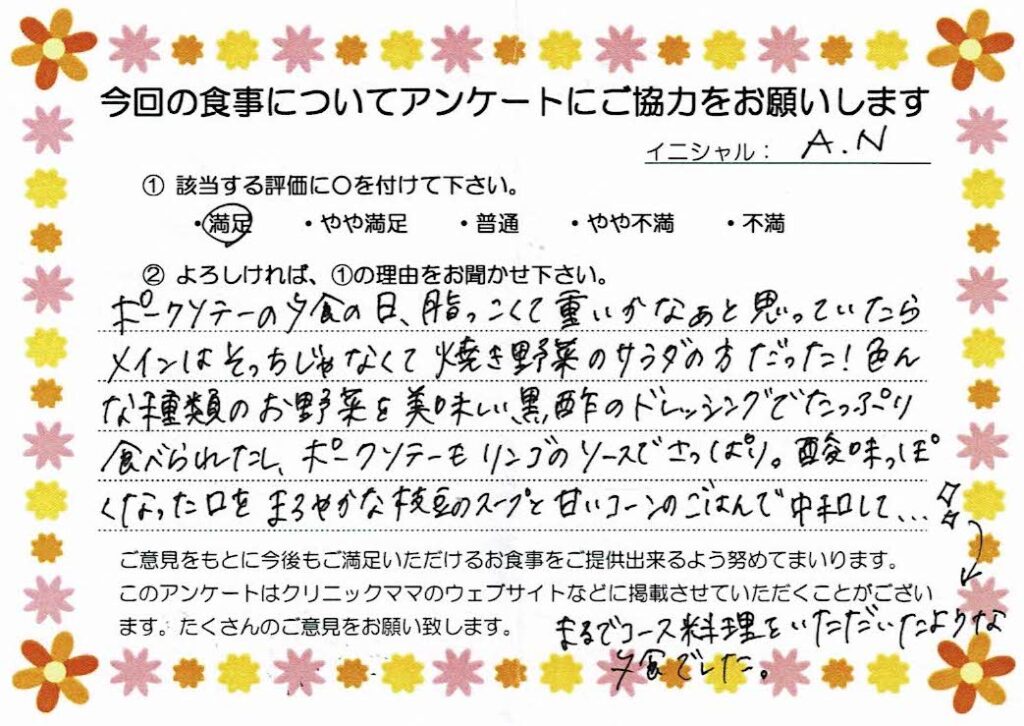 今回の食事についてアンケートにご協力をお願いします
イニシャル： A.N
① 該当する評価に〇を付けて下さい。
・満足 ・やや満足 ・普通 ・やや不満 ・不満
② よろしければ、①の理由をお聞かせ下さい。
ポークソテーの夕食の日、脂っこくて重いかなぁと思っていたら
メインはそっちじゃなくて焼き野菜のサラダの方だった！色ん
な種類のお野菜を美味しい黒酢のドレッシングでたっぷり
食べられたし、ポークソテーもリンゴのソースでさっぱり。酸味っぽ
くなった口をまろやかな枝豆のスープと甘いコーンのごはんで中和して...
ご意見をもとに今後もご満足いただけるお食事をご提供出来るよう努めてまいります。
このアンケートはクリニックママのウェブサイトなどに掲載させていただくことがござい
ます。たくさんのご意見をお願い致します。
まるでコース料理をいただいたような
夕食でした。